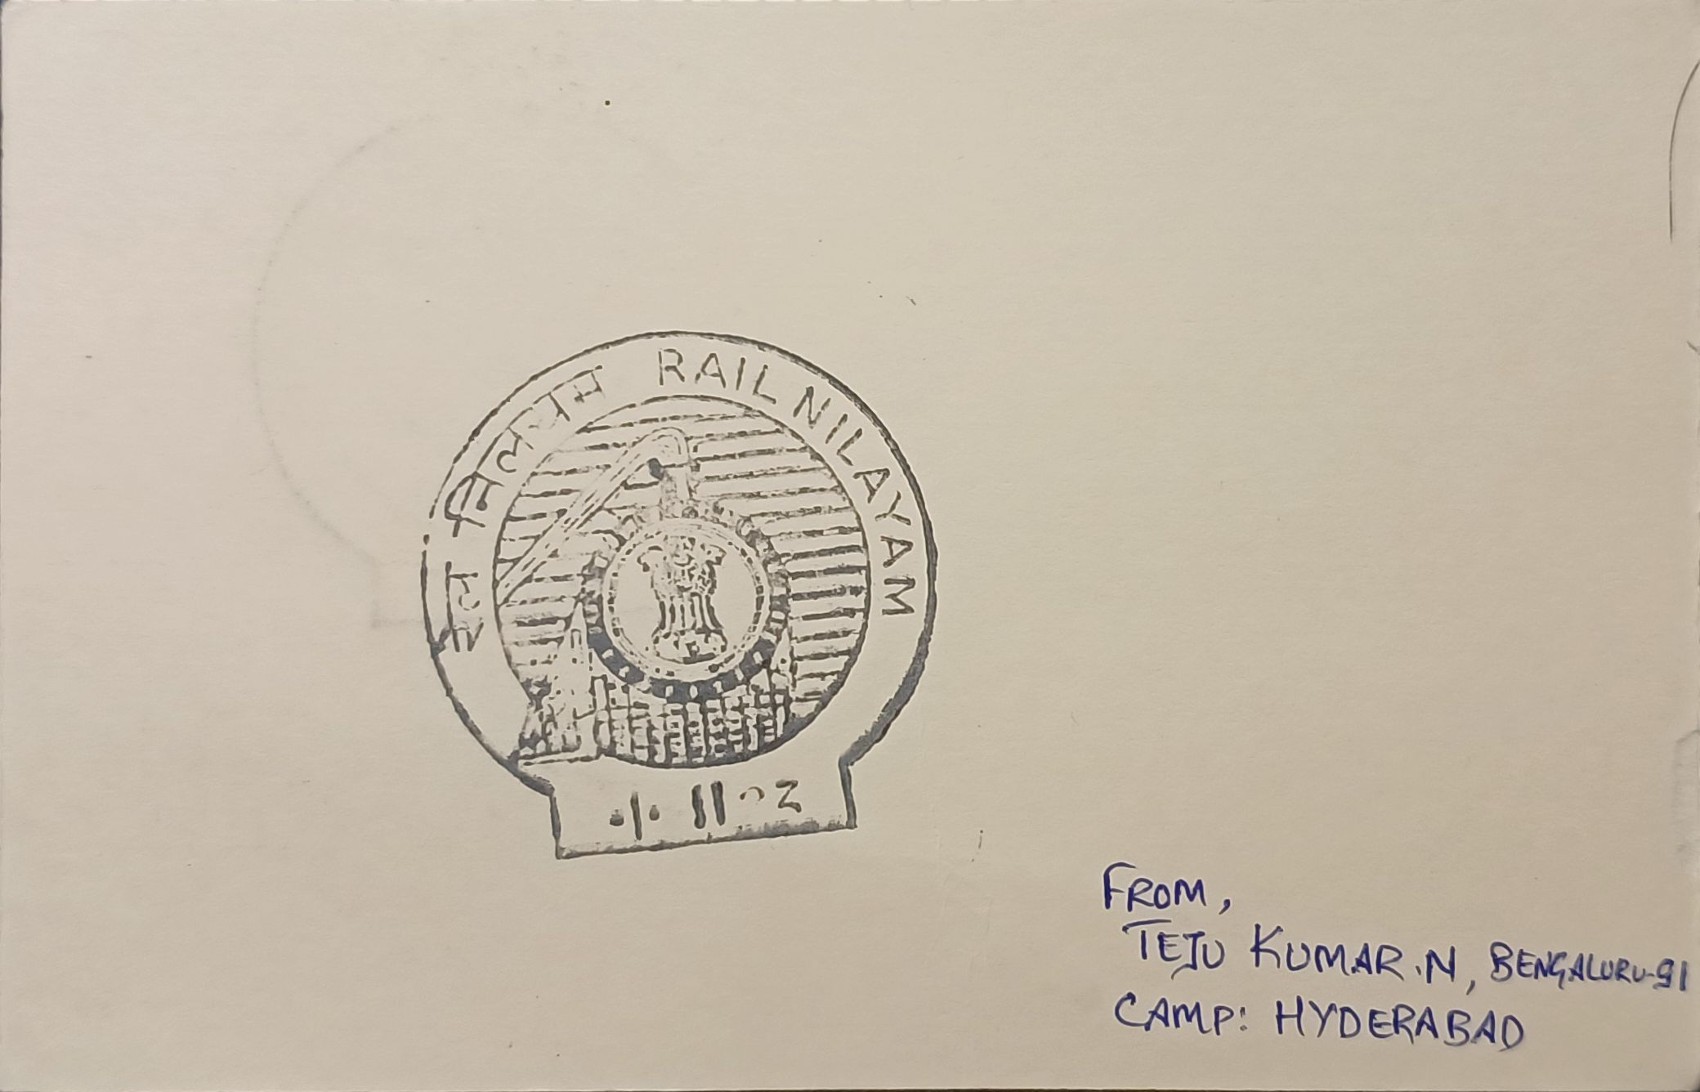 रेल निलयम RAIL NILAYAM
FROM,
TEJU KUMAR.N, BENGALURU-91
CAMP: HYDERABAD